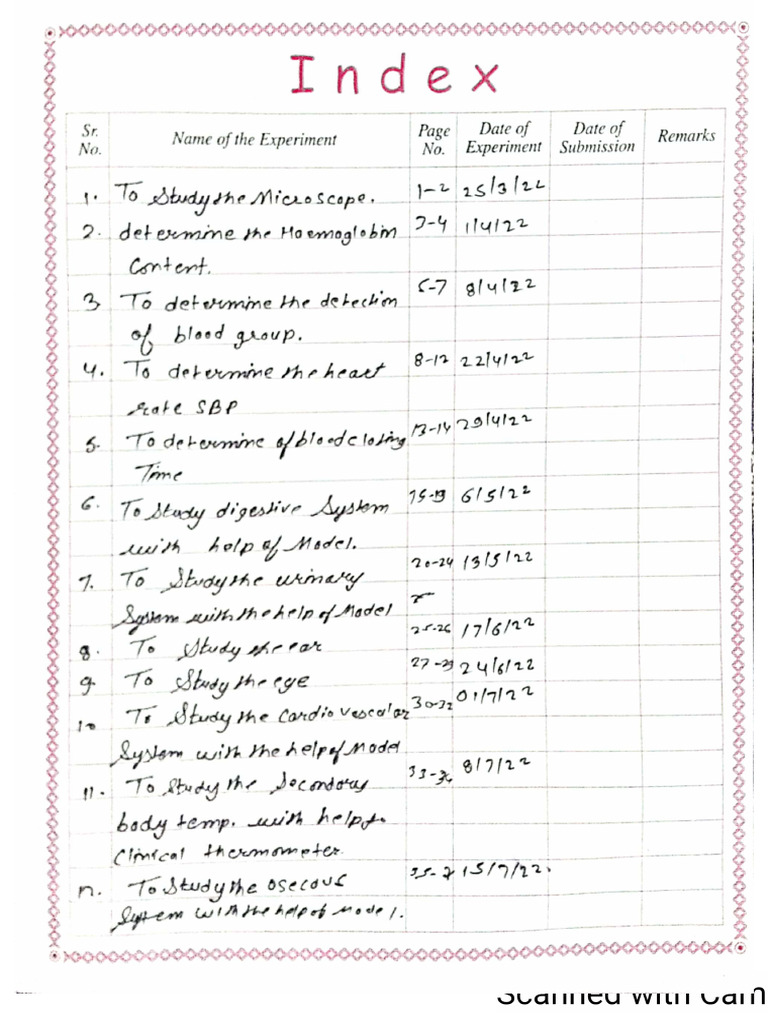 Index
Sr. No. Name of the Experiment Page No. Date of Experiment Date of Submission Remarks
1. To Study the Microscope. 1-2 25/3/22
2. determine the Haemoglobin 3-4 1/4/22
Content.
3 To determine the detection 5-7 8/4/22
of blood group.
4. To determine the heart 8-12 22/4/22
rate SBP
5. To determine of blood cloting 13-14 29/4/22
Time
6. To Study digestive System 15-19 6/5/22
with help of Model.
7. To Study the urinary 20-24 13/5/22
System with the help of Model
8. To Study the ear 25-26 17/6/22
9 To Study the eye 27-29 24/6/22
10 To Study the Cardiovescalar 30-32 01/7/22
System with the help of Model
11. To Study the Secondary 33-34 8/7/22
body temp. with help to
Clinical thermometer.
12. To Study the osecous 15/7/22.
System with the help of Model.
Scanned with Cam